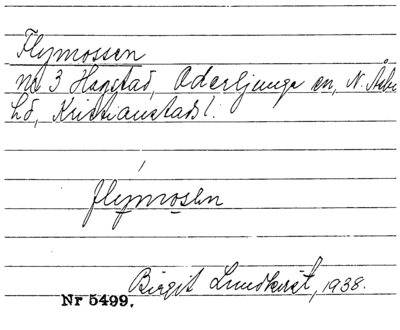 Flymossen
nr 3 Hagstad, Oderljunga sn, N. Åsbo
hd, Kristianstads l.
flymosen
Birgit Lundkvist, 1938.
Nr 5499.